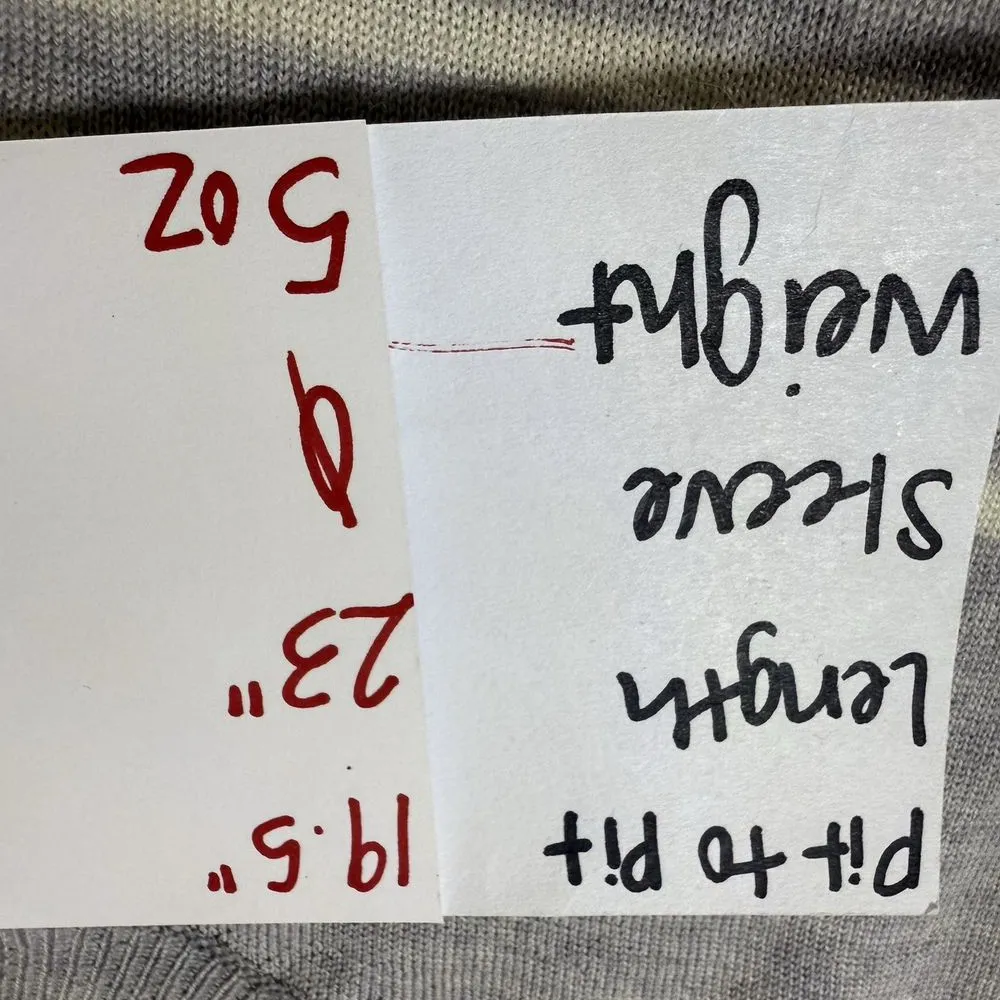 Pit to Pit 19.5"
Length 23"
Sleeve Ø
Weight 5 oz